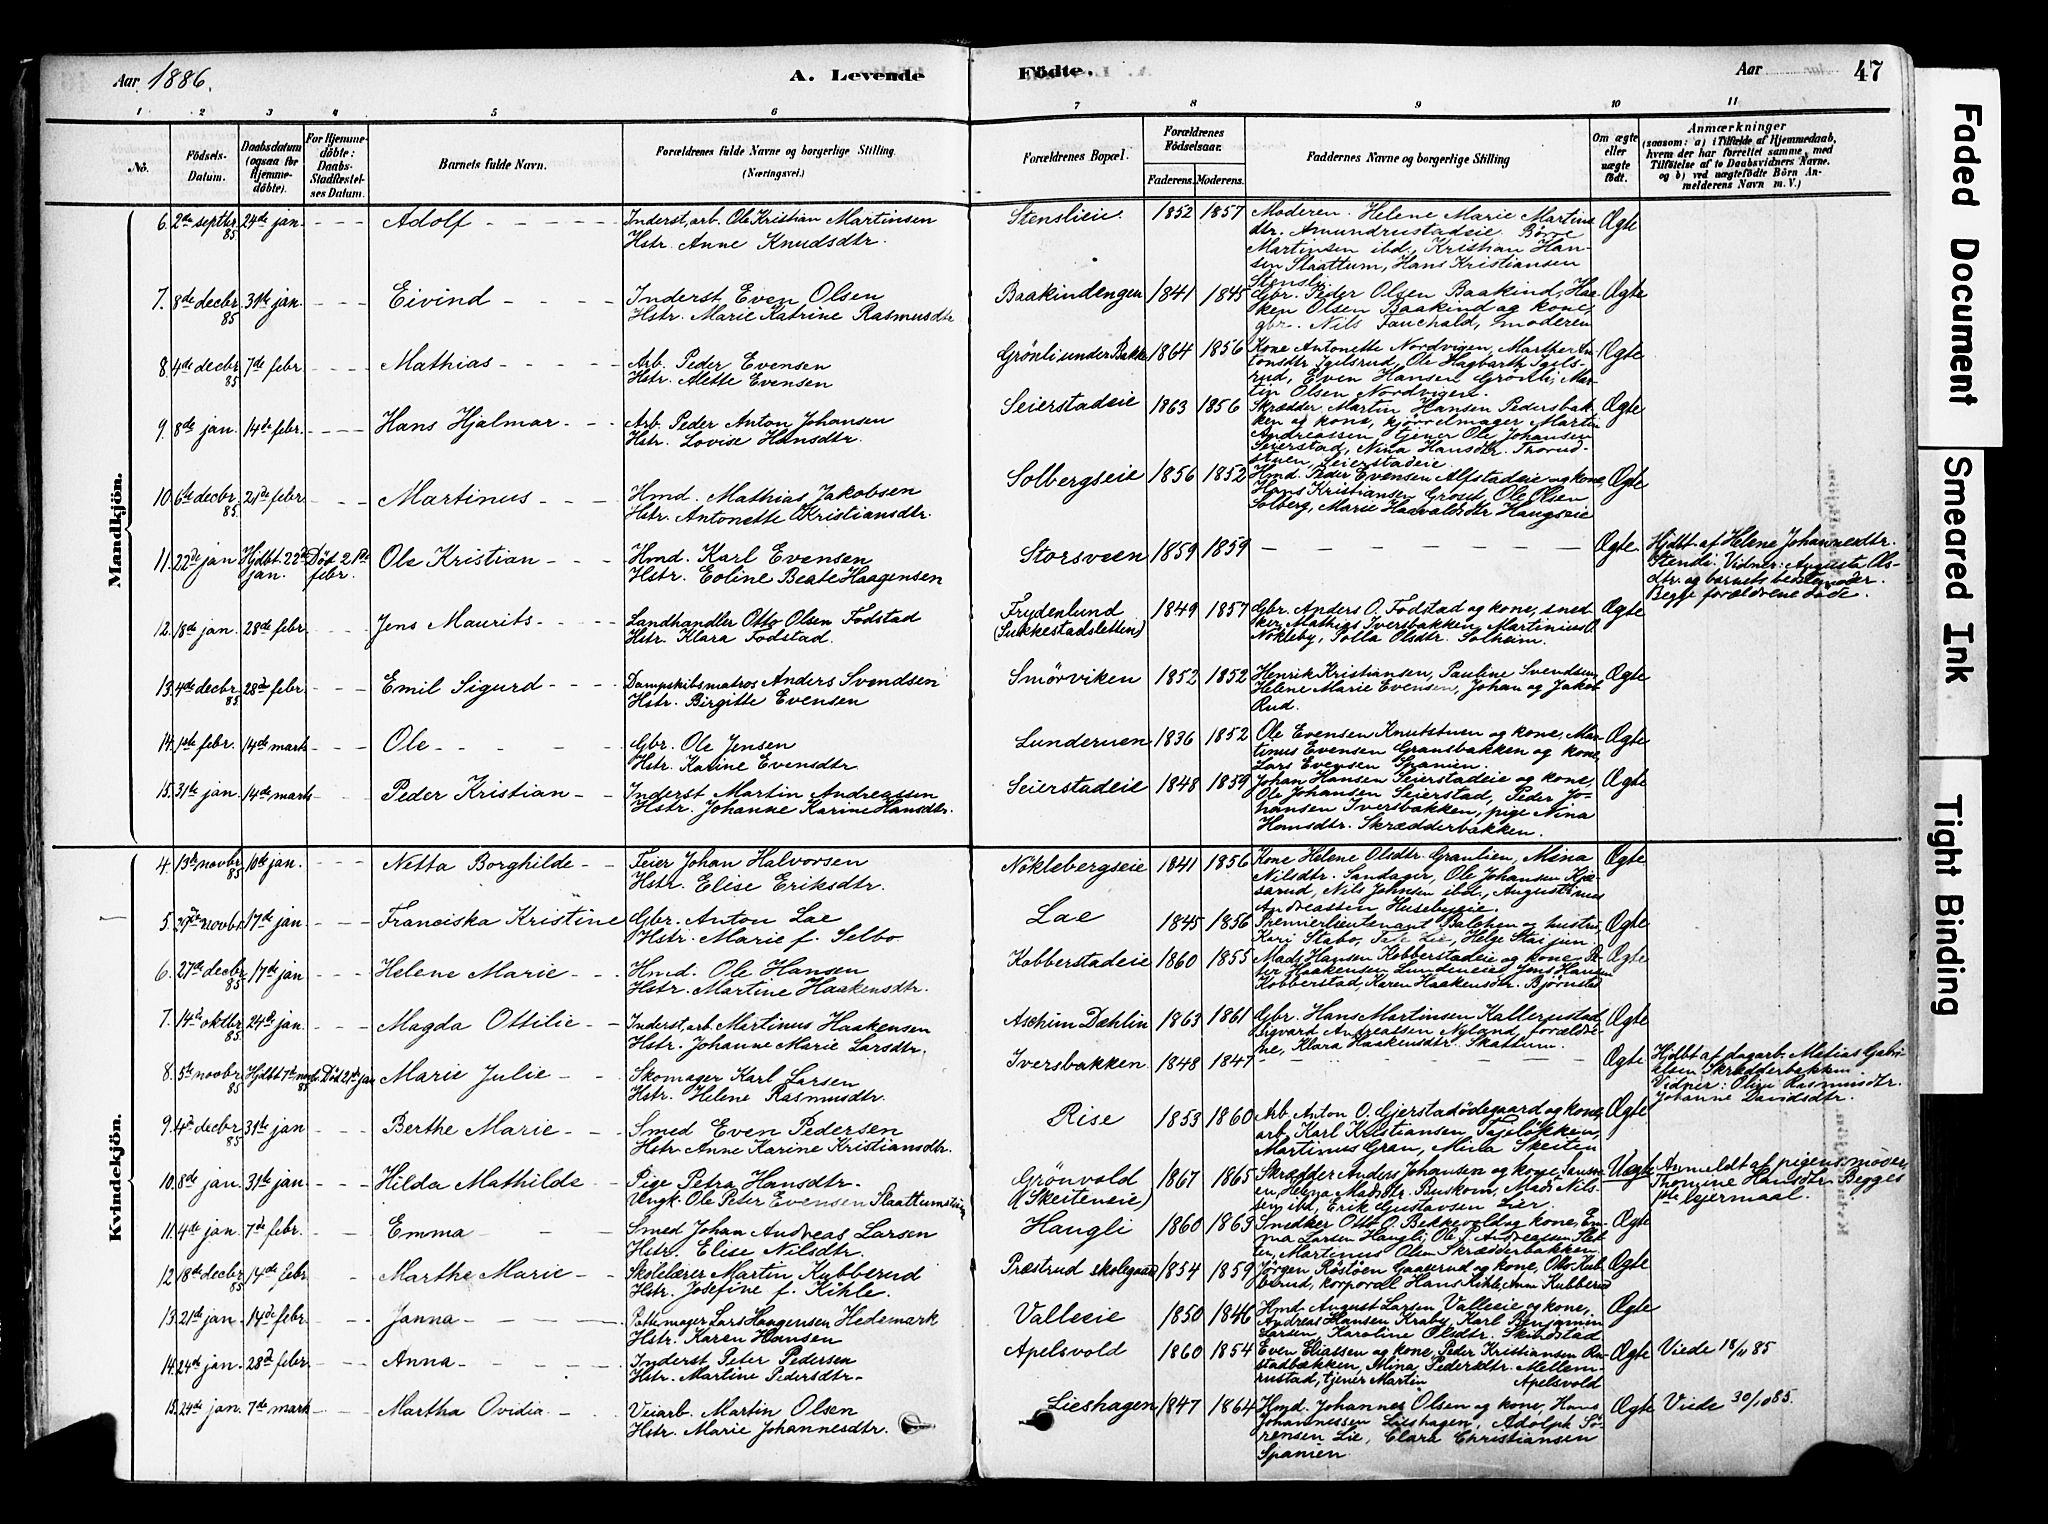 Aar 1886.
A. Levende
Födte.
Aar
47
1 2 3 4 5 6 7 8 9 10 11
No.
Födsels-Datum.
Daabsdatum (ogsaa for Hjemme-döbte).
For Hjemme-döbte: Daabs-Stadfæstelses Datum.
Barnets fulde Navn.
Forældrenes fulde Navne og borgerlige Stilling (Næringsvei.)
Forældrenes Bopæl.
Forældrenes Födselsaar.
Faderens. Moderens.
Faddernes Navne og borgerlige Stilling
Om ægte eller uægte födt.
Anmærkninger
(saasom: a) i Tilfælde af Hjemmedaab,
hvem der har forrettet samme, med
Tilföielse af to Daabsvidners Navne.
og b) ved uægtefödte Börn An-
melderens Navn m. V.)
Mandkjön.
6. 2de septbr 85 24de jan. Adolf Inderst, arb. Ole Kristian Martinsen Stenslieie. 1852 1857 Moderen. Helene Marie Martins Ægte
Hstr. Anne Knudsdtr. dtr. Amundrustadeie. Börre
Martinsen ibd, Kristian Han-
sen Slaattum, Hans Kristiansen
Stensli.
7. 8de decbr 85 31te jan Eivind Inderst Even Olsen Baakindengen 1841 1845 Gbr. Peder Olsen Baakind, Haa- Ægte
Hstr. Marie Katrine Rasmusdtr ken Olsen Baakind og kone,
gbr. Nils Fauchald, moderen
8. 4de decbr 85 7de febr Mathias Arb. Peder Evensen Grönli under Bakke 1864 1856 Kone Antonette Nordvigen, Marthe An- Ægte
Hstr. Alette Evensen tonsdtr Igelsrud, Ole Hagbarth Igels-
rud, Even Hansen Grönli, Mar-
tin Olsen Nordvigen.
9. 8de jan. 14de febr. Hans Hjalmar Arb. Peder Anton Johansen Seierstadeie 1863 1856 Skrædder Martin Hansen Pedersbak- Ægte
Hstr. Lovise Hansdtr. ken og kone, hjörvelmager Martin
Andreassen tjener Ole Johansen
Seierstad, Nina Hansdtr. Thorud-
stuen, Seierstadeie.
10. 6te decbr 85. 21de febr Martinus Hmd. Mathias Jakobsen Solbergseie 1856 1852 Hmd. Peder Evensen Alfstadeie og kone, Ægte
Hstr. Antonette Kristiansdtr. Hans Kristiansen Groset, Ole Olsen
Solberg, Marie Harvaldsdtr Haugseie
11. 22de jan Hjdbt 22de jan. Död 21de febr. Ole Kristian Hmd. Karl Evensen Storsveen 1859 1859 Ægte. Hjdbt af Helene Johannesdtr.
Hstr. Eoline Beate Haagensen Stensli. Vidner: Augusta Ols-
dtr. og barnets bedstemoder.
Begge forældrene döde.
12. 18de jan. 28de febr. Jens Maurits Landhandler Otto Olsen Fodstad Frydenlund 1849 1857 Gbr. Anders O. Fodstad og kone, sned- Ægte
Hstr. Klara Fodstad. (Sukkestadsletten) ker Mathias Iversbakken, Martinius O.
Nökleby, Polla Olsdtr. Solheim.
13. 4de decbr. 85 28de febr. Emil Sigurd Dampskibsmatros Anders Svendsen Smörviken 1852 1852 Henrik Kristiansen, Pauline Svendsen, Ægte
Hstr. Birgitte Evensen Helene Marie Evensen, Johan og Jakob
Rud.
14. 1ste febr. 14de marts Ole Gbr. Ole Jensen Lunderuen 1836 1852 Ole Evensen Knutstuen og kone, Mar- Ægte
Hstr. Karine Evensdtr tinus Evensen Gransbakken og kone,
Lars Evensen Spanien.
15. 31te jan. 14de marts Peder Kristian Inderst Martin Andreassen Seierstadeie 1848 1859 Johan Hansen Seierstadeie og kone, Ægte
Hstr. Johanne Karine Hansdtr. Ole Johansen Seierstad, Peder Jo-
hansen Iversbakken, pige Nina
Hansdtr. Skrædderbakken.
Kvindekjön.
4. 13de novbr 85 10de jan. Netta Borghilde Feier Johan Halvorsen Nöklebergseie 1841 1856 Kone Helene Olsdtr. Granlien, Mina Ægte
Hstr. Elise Eriksdtr. Nilsdtr. Sandager, Ole Johansen Kjæ-
sarud, Nils Johnsen ibd, Augustinus
Andreassen Husebyeie.
5. 30te novbr. 17de jan Franciska Kristine Gbr. Anton Lae Lae 1845 1856 Premierlieutenant Balchen og hustru, Ægte
Hstr. Marie f. Selbo. Kari Stabo, Lie, Helge Stai jun.
6. 27de decbr 85 17de jan Helene Marie Hmd. Ole Hansen Kobberstadeie 1860 1855 Mads Hansen Kobberstadeie og kone, Pe- Ægte
Hstr. Martine Haakensdtr. ter Haakensen Lundeneie, Jens Hansen
Kobberstad, Karen Haakensdtr. Bjørnstad
7. 14de oktbr 85. 24de jan Magda Ottilie Inderst, arb. Martinus Haakensen Aschim Dæhlin 1863 1861 Gbr. Hans Martinsen Kallerustad, Ægte
Hstr. Johanne Marie Larsdtr. Sigvard Andreassen Nyland, forældre-
ne, Klara Haakensdtr. Skattum.
8. 5te novbr 85 Hjdbt 7de novbr. 85 Död 21de jan Marie Julie Skomager Karl Larsen Iversbakken 1848 1847 Ægte Hjdbt af dagarb. Matias Gabri-
Hstr. Helene Rasmusdtr. elsen Skrædderbakken.
Vidner: Oline Rasmusdtr.
Johanne Davidsdtr.
9. 4de decbr 85 31te jan Berthe Marie Smed Even Pedersen Rise 1853 1860 Arb. Anton O. Gjerstadödegaard og kone, Ægte
Hstr. Anne Karine Kristiansdtr. arb. Karl Kristiansen Tajelökken,
Martinus Gran, Mina Skeiten
10. 8de jan. 31te jan Hilda Mathilde Pige Petra Hansdtr. Grönvold 1867 1865 Skrædder Anders Johansen og kone, Uægte Anmeldt af pigens moder,
Ungk. Ole Peter Evensen Slaattumseie (Skeiteneie) Helena Madsdtr. Buskom, Mads Nils- Thomine Hansdtr. Begges
sen ibd, Erik Gustavsen Lier. 1ste leiermaal.
11. 4de jan 7de febr. Emma Smed Johan Andreas Larsen Haugli 1860 1863 Snedker Otto O. Bekkevold og kone, Em- Ægte
Hstr. Elise Nilsdtr. ma Larsen Haugli, Ole P. Andreassen
Martinus Olsen Skrædderbakken.
12. 18de decbr 85 14de febr. Marthe Marie Skolelærer Martin Kubberud Præstrud skolegaard 1854 1859 Jörgen Röstöen Gaaerud og kone, Otto Kub- Ægte
Hstr. Josefine f. Kihle. berud, korporal Hans Kihle, Ann. Kubberud
13. 21de jan 14de febr. Janna Pottemager Lars Haagensen Hedemark Valleeie 1850 1846 Hmd. August Larsen Valleeie og kone, Ægte
Hstr. Karen Hansen Andreas Hansen Kraby, Karl Benjamin
Larsen, Karoline Olsdtr. Skindstad
14. 24de jan. 28de febr. Anna Inderst Peter Pedersen Apelsvold 1860 1854 Even Eliassen og kone, Peder Kristiansen Ru- Ægte Viede 18/11 85
Hstr. Martine Pedersdtr. stadbakken, Mina Pedersdtr. Mellem-
rustad, tjener Martin Apelsvold
15. 24de jan. 7de marts Martha Ovidia Veiarb. Martin Olsen Lieshagen 1847 1864 Hmd. Johannes Olsen og kone, Hans Ægte Viede 30/10 85.
Hstr. Marie Johannesdtr. Johannessen Lieshagen, Adolph Sö-
rensen Lie, Clara Christiansen
Spanien
Faded Document
Smeared Ink
Tight Binding